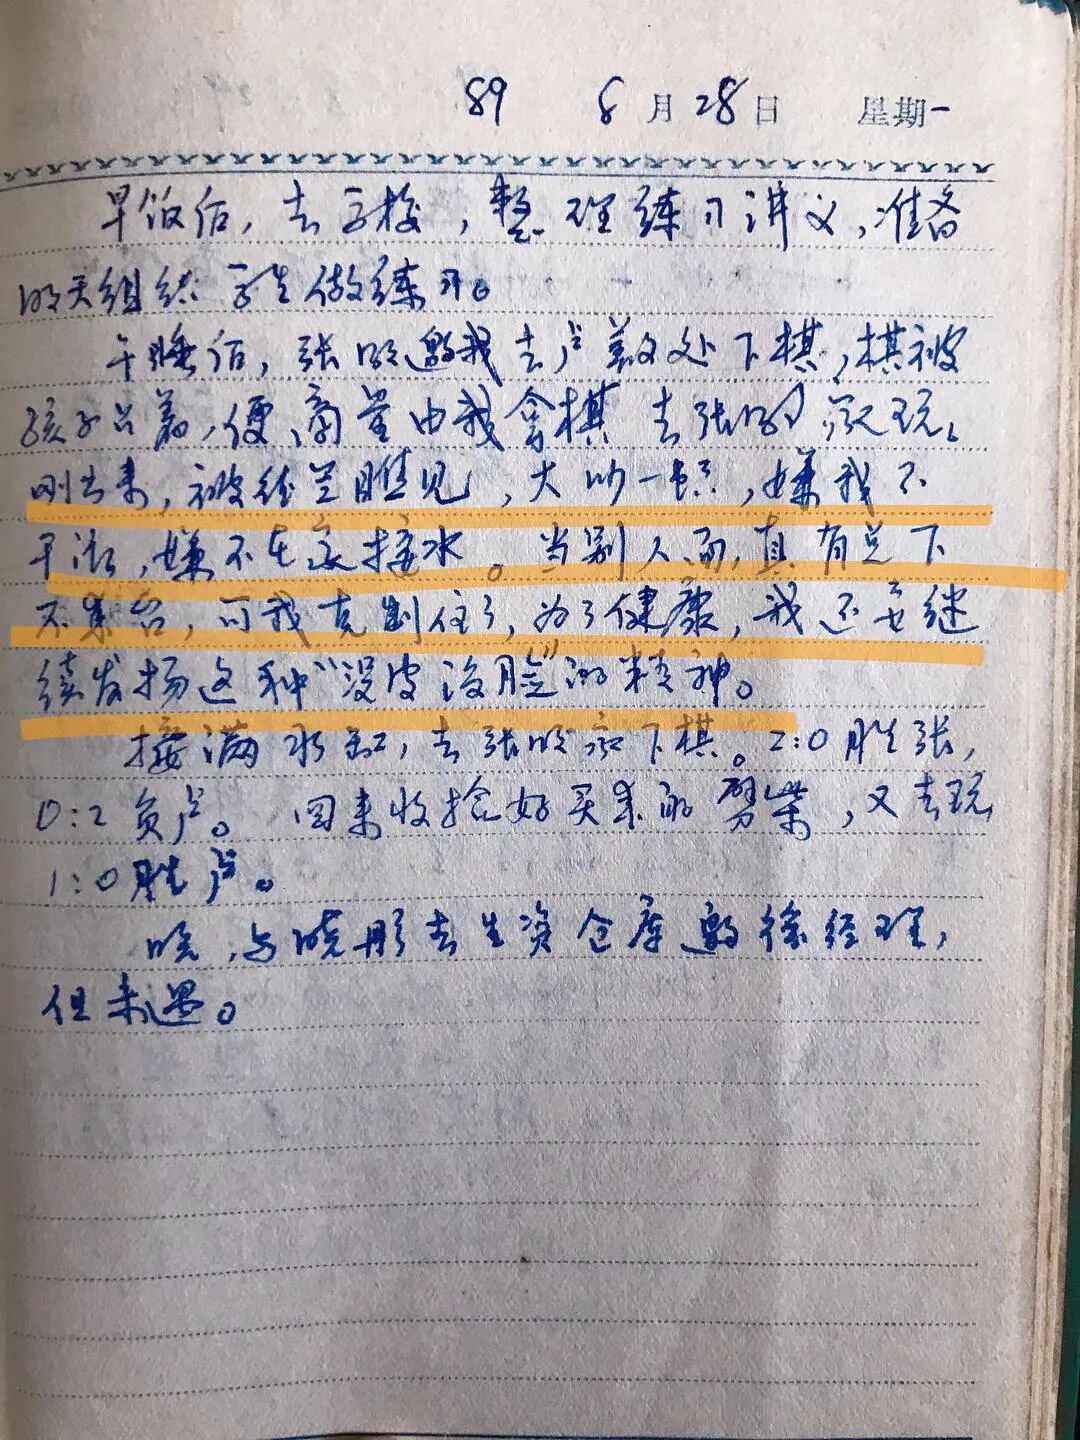 89 8月28日 星期一
早饭后，去学校，整理练习讲义，准备
明天组织学生做练习。
午睡后，张明邀我去卢义处下棋，棋被
孩子占着，便商量由我拿棋去张明家玩。
刚出来，被维兰瞧见，大吵一顿，嫌我不
干活，嫌不在家接水。当别人面，真有点下
不来台，可我克制住了，为了健康，我还要继
续发扬这种“没皮没脸”的精神。
接满水缸，去张明家下棋。2:0胜张，
0:2负卢。回来收拾好买来的劈柴，又去玩
1:0胜卢。
晚，与晓彤去生资仓库邀徐经理，
但未遇。